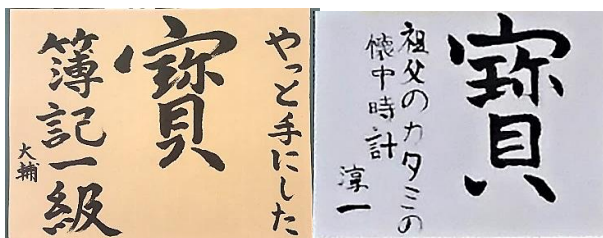 やっと手にした
寳
簿記一級
大輔
寳
祖父のカタミの
懐中時計
淳一